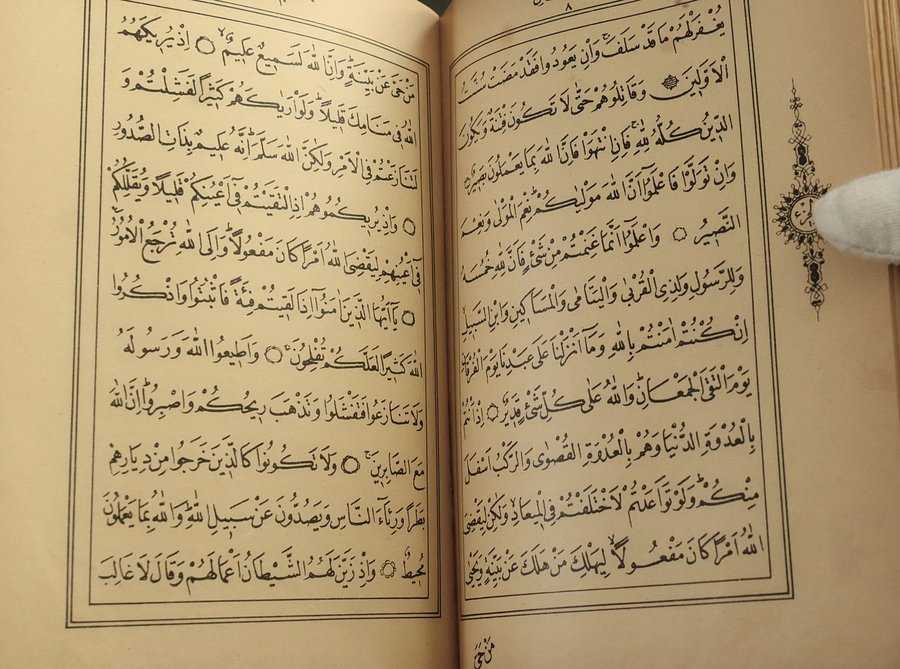 ٨
يُغْفَرْلَهُمْ مَا قَدْ سَلَفَ وَاِنْ يَعُودُوا فَقَدْ مَضَتْ سُنَّتُ
الْاَوَّلٖينَ وَقَاتِلُوهُمْ حَتّٰى لَا تَكُونَ فِتْنَةٌ وَيَكُونَ
الدّٖينُ كُلُّهُ لِلّٰهِ فَاِنِ انْتَهَوْا فَاِنَّ اللّٰهَ بِمَا يَعْمَلُونَ بَصٖيرٌ
وَاِنْ تَوَلَّوْا فَاعْلَمُٓوا اَنَّ اللّٰهَ مَوْلٰيكُمْ نِعْمَ الْمَوْلٰى وَنِعْمَ
النَّصٖيرُ وَاعْلَمُٓوا اَنَّمَا غَنِمْتُمْ مِنْ شَىْءٍ فَاَنَّ لِلّٰهِ خُمُسَهُ
وَلِلرَّسُولِ وَلِذِى الْقُرْبٰى وَالْيَتَامٰى وَالْمَسَاكٖينِ وَابْنِ السَّبٖيلِ
اِنْ كُنْتُمْ اٰمَنْتُمْ بِاللّٰهِ وَمَٓا اَنْزَلْنَا عَلٰى عَبْدِنَا يَوْمَ الْفُرْقَانِ
يَوْمَ الْتَقَى الْجَمْعَانِ وَاللّٰهُ عَلٰى كُلِّ شَىْءٍ قَدٖيرٌ اِذْ اَنْتُمْ
بِالْعُدْوَةِ الدُّنْيَا وَهُمْ بِالْعُدْوَةِ الْقُصْوٰى وَالرَّكْبُ اَسْفَلَ
مِنْكُمْ وَلَوْ تَوَاعَدْتُمْ لَاخْتَلَفْتُمْ فِى الْمٖيعَادِ وَلٰكِنْ لِيَقْضِىَ
اللّٰهُ اَمْرًا كَانَ مَفْعُولًا لِيَهْلِكَ مَنْ هَلَكَ عَنْ بَيِّنَةٍ وَيَحْيٰى
مَنْ حَىَّ
مَنْ حَىَّ عَنْ بَيِّنَةٍ وَاِنَّ اللّٰهَ لَسَمٖيعٌ عَلٖيمٌ اِذْ يُرٖيكَهُمُ
اللّٰهُ فٖى مَنَامِكَ قَلٖيلًا وَلَوْ اَرٰيكَهُمْ كَثٖيرًا لَفَشِلْتُمْ وَ
لَتَنَازَعْتُمْ فِى الْاَمْرِ وَلٰكِنَّ اللّٰهَ سَلَّمَ اِنَّهُ عَلٖيمٌ بِذَاتِ الصُّدُورِ
وَاِذْ يُرٖيكُمُوهُمْ اِذِ الْتَقَيْتُمْ فٖٓى اَعْيُنِكُمْ قَلٖيلًا وَيُقَلِّلُكُمْ
فٖٓى اَعْيُنِهِمْ لِيَقْضِىَ اللّٰهُ اَمْرًا كَانَ مَفْعُولًا وَاِلَى اللّٰهِ تُرْجَعُ الْاُمُورُ
يَٓا اَيُّهَا الَّذٖينَ اٰمَنُٓوا اِذَا لَقٖيتُمْ فِئَةً فَاثْبُتُوا وَاذْكُرُوا
اللّٰهَ كَثٖيرًا لَعَلَّكُمْ تُفْلِحُونَ وَاَطٖيعُوا اللّٰهَ وَرَسُولَهُ
وَلَا تَنَازَعُوا فَتَفْشَلُوا وَتَذْهَبَ رٖيحُكُمْ وَاصْبِرُوا اِنَّ اللّٰهَ
مَعَ الصَّابِرٖينَ وَلَا تَكُونُوا كَالَّذٖينَ خَرَجُوا مِنْ دِيَارِهِمْ
بَطَرًا وَرِئَٓاءَ النَّاسِ وَيَصُدُّونَ عَنْ سَبٖيلِ اللّٰهِ وَاللّٰهُ بِمَا يَعْمَلُونَ
مُحٖيطٌ وَاِذْ زَيَّنَ لَهُمُ الشَّيْطَانُ اَعْمَالَهُمْ وَقَالَ لَا غَالِبَ